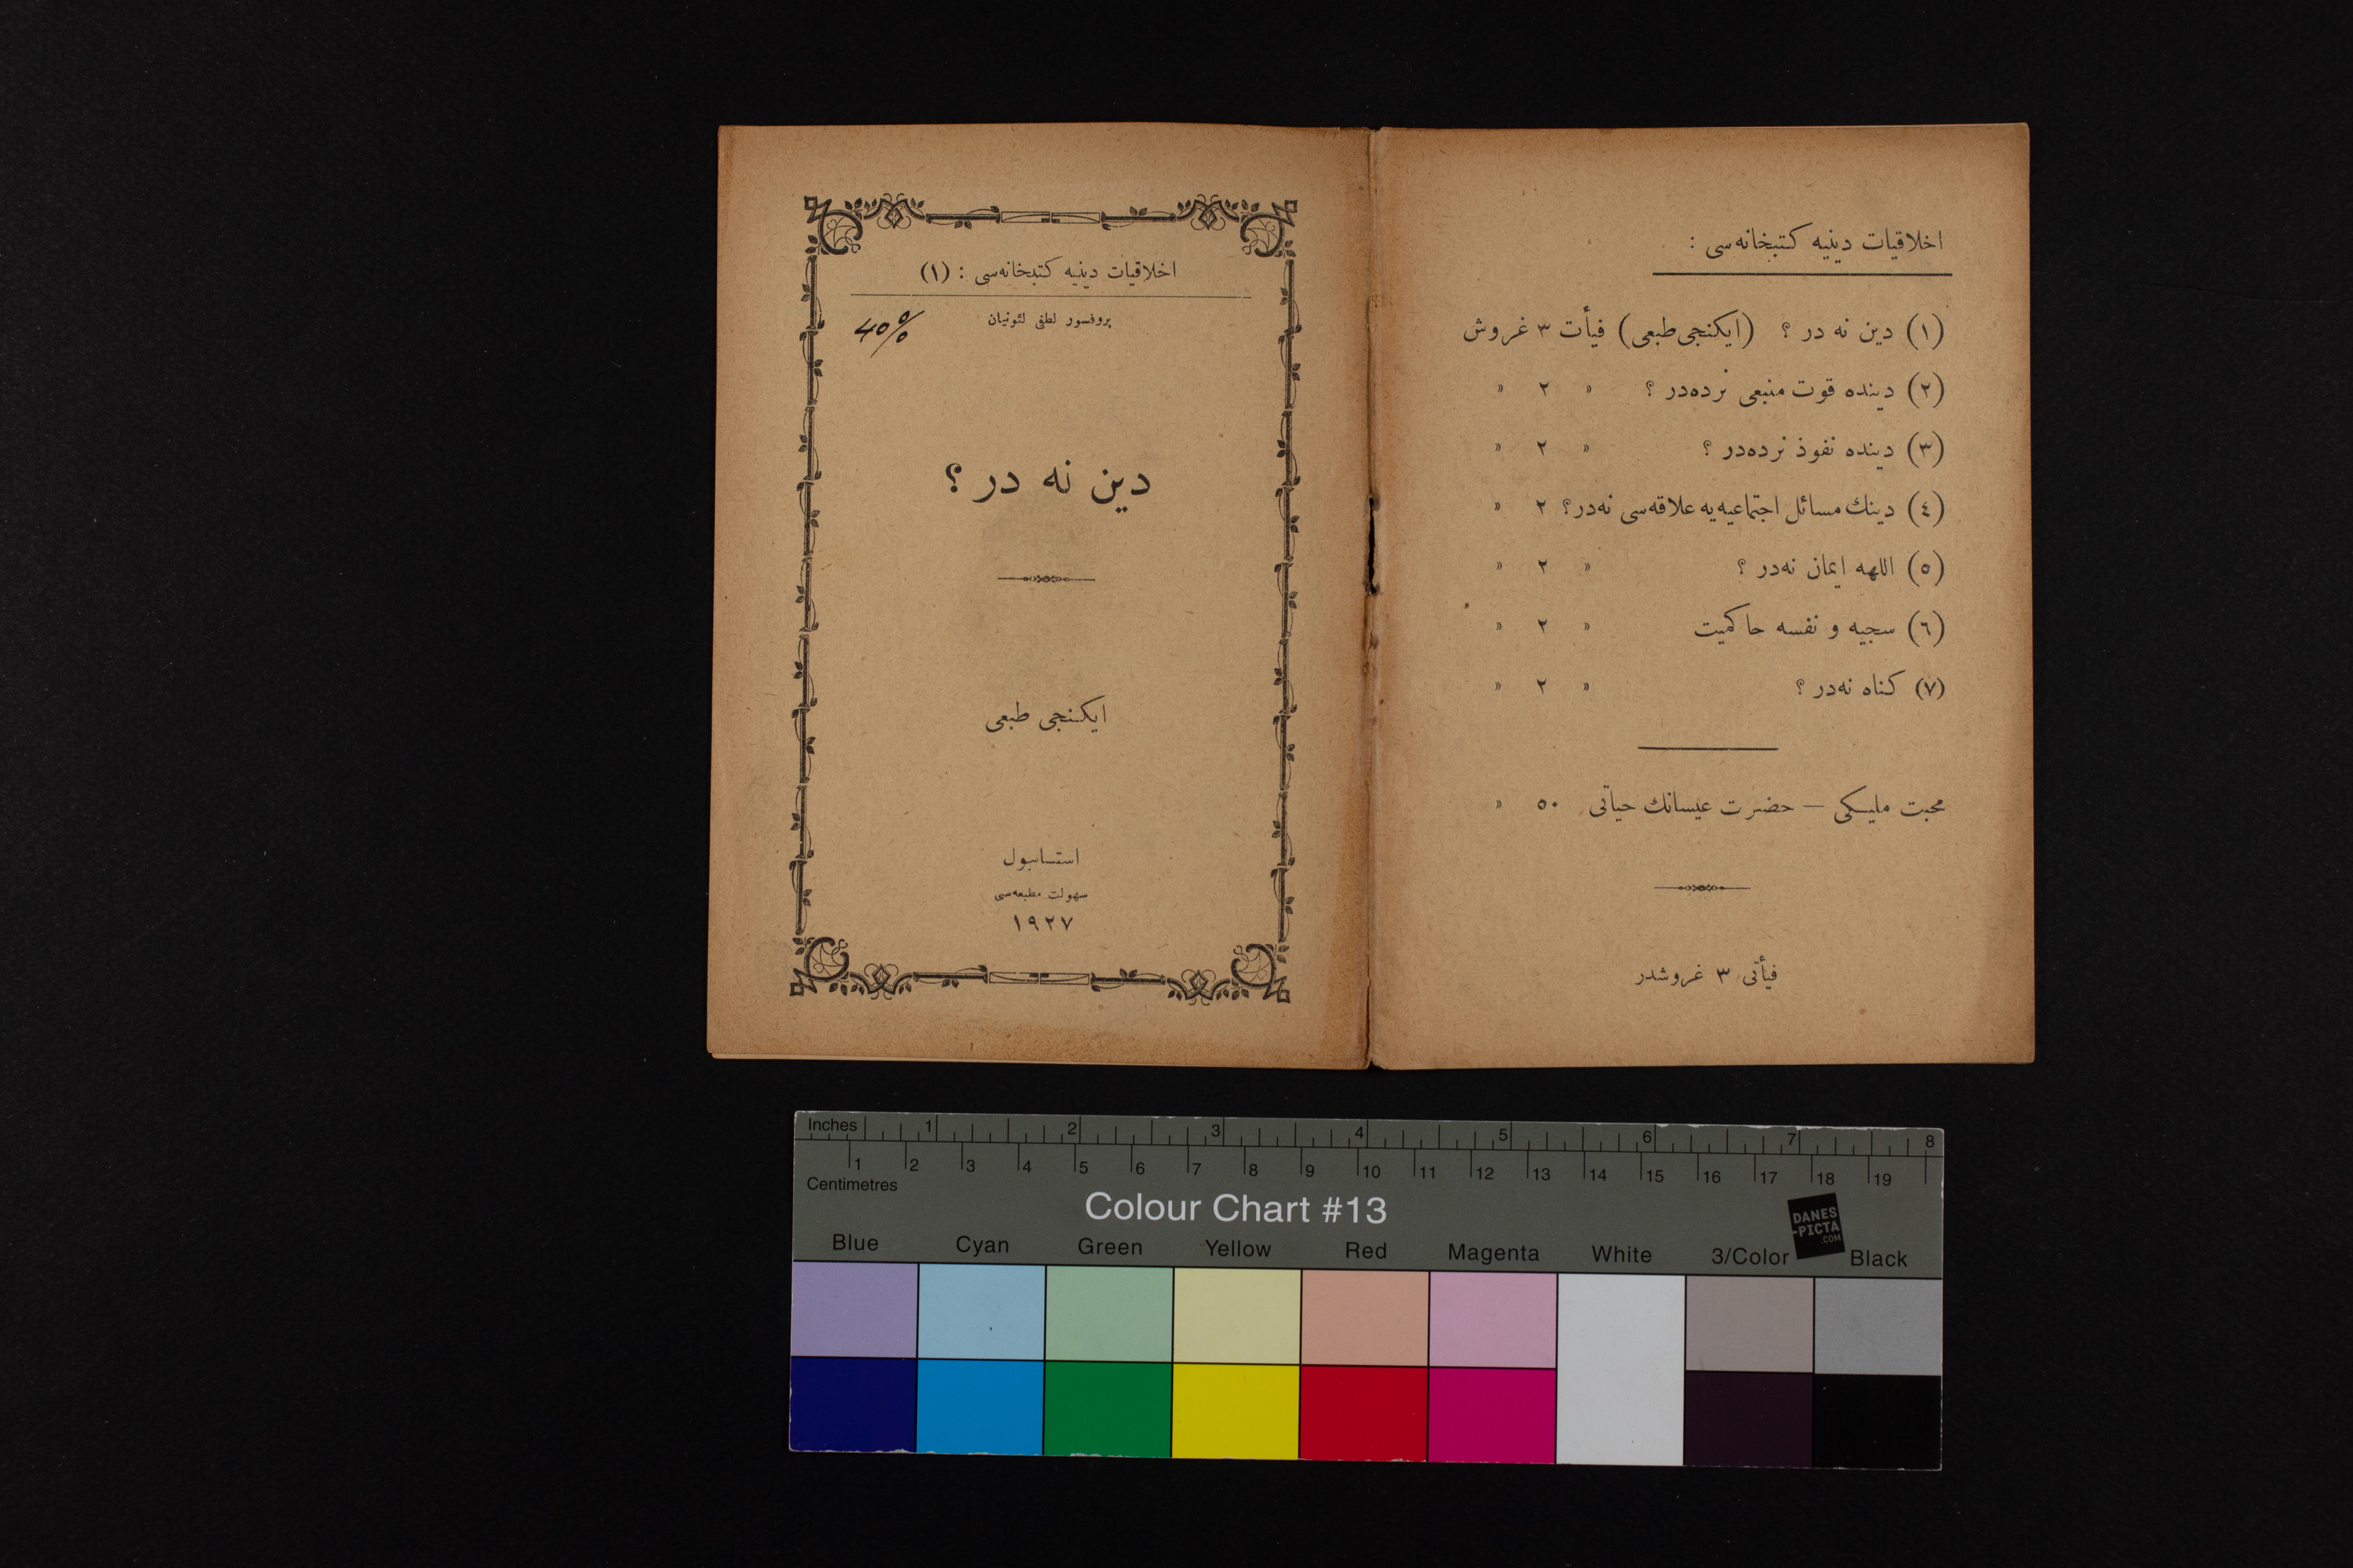 اخلاقیات دینیه کتبخانه‌سی :
(١) دین نه در ؟ (ایکنجی طبعی) فیأت ٣ غروش
(٢) دینده قوت منبعی نرده‌در ؟ » ٢ »
(٣) دینده نفوذ نرده‌در ؟ » ٢ »
(٤) دینك مسائل اجتماعیه‌یه علاقه‌سی نه‌در؟ ٢ »
(٥) اللهه ایمان نه‌در ؟ » ٢ »
(٦) سجیه و نفسه حاکمیت » ٢ »
(٧) کناه نه‌در ؟ » ٢ »
محبت ملیکی — حضرت عیسانك حیاتی ٥٠ »
فیأتی ٣ غروشدر
اخلاقیات دینیه کتبخانه‌سی : (١)
پروفسور لطفی لئونیان
40%
دین نه در ؟
ایکنجی طبعی
استانبول
سهولت مطبعه‌سی
١٩٢٧
Inches 1 2 3 4 5 6 7 8
1 2 3 4 5 6 7 8 9 10 11 12 13 14 15 16 17 18 19
Centimetres
Colour Chart #13
DANES
-PICTA
.COM
Blue Cyan Green Yellow Red Magenta White 3/Color Black